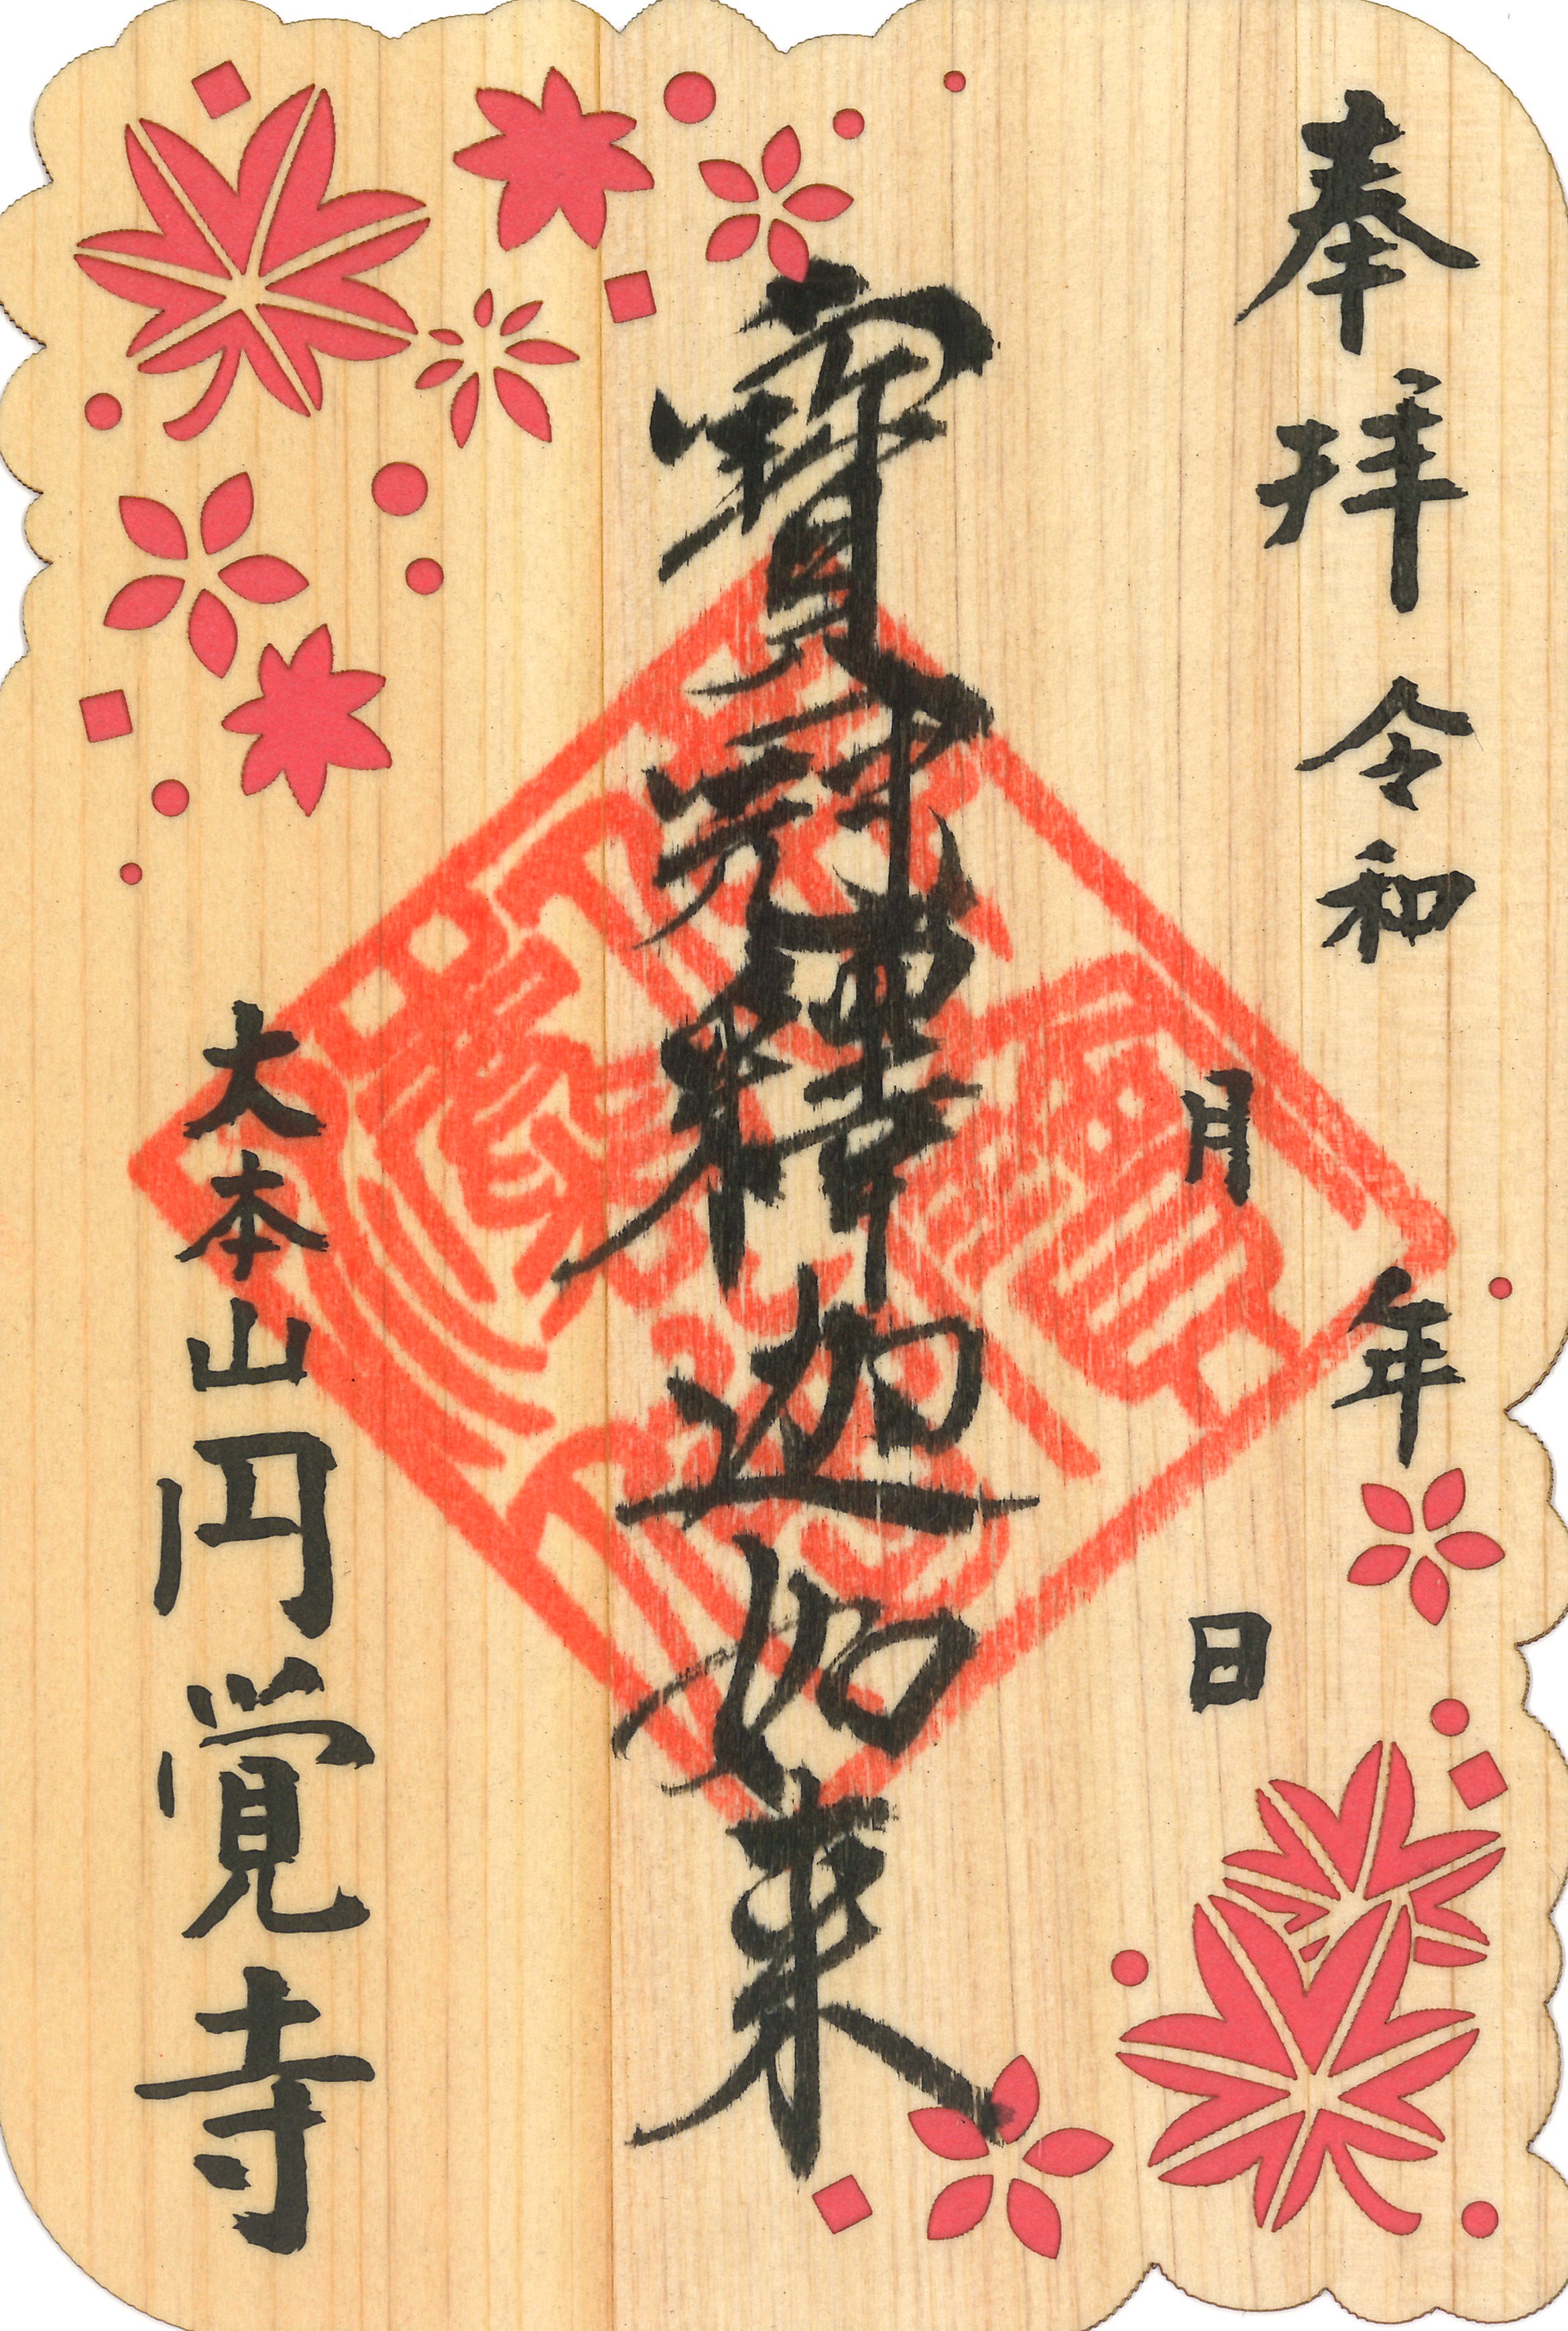 奉拝 令和 年
月 日
寳冠釋迦如来
大本山円覚寺